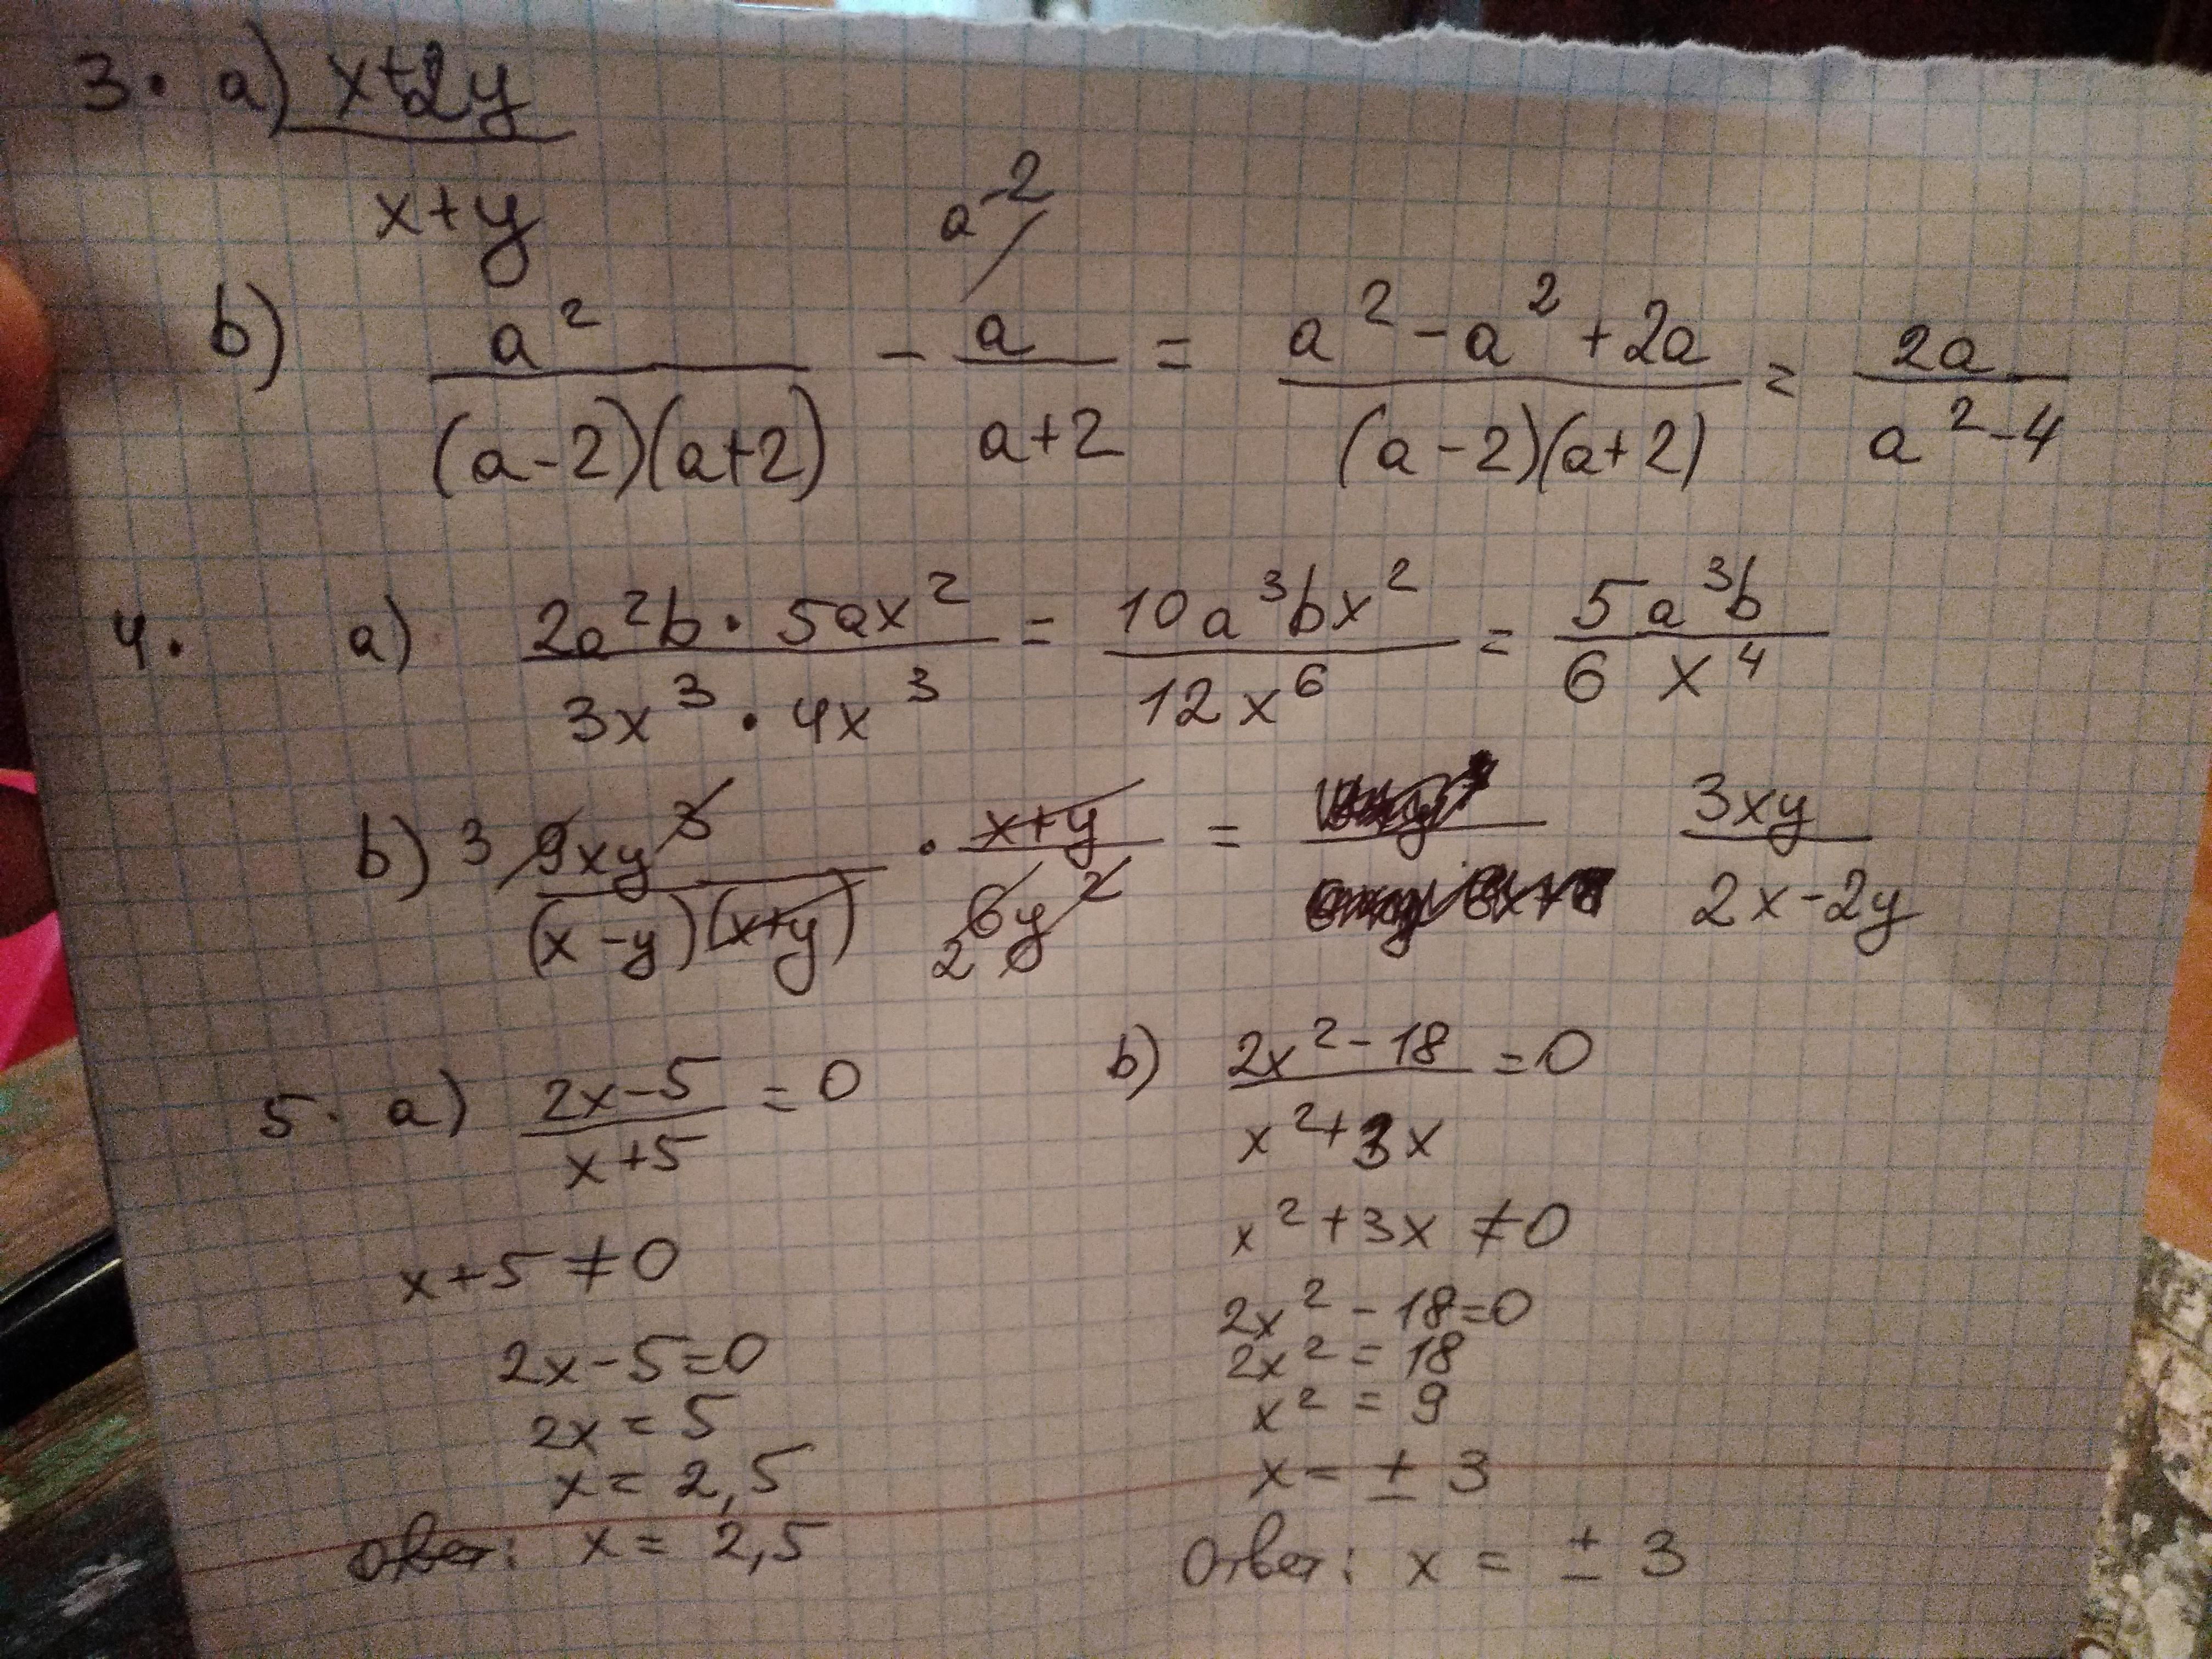 3. a) x+2y / x+y
b) a² / (a-2)(a+2) - a / a+2 (a-2) = a² - a² + 2a / (a-2)(a+2) = 2a / a²-4
4. a) 2a²b · 5ax² / 3x³ · 4x³ = 10a³bx² / 12x⁶ = 5a³b / 6x⁴
b) 3 9xy³ / (x-y)(x+y) · x+y / 2 6y² = 3xy / 2x-2y
5. a) 2x-5 / x+5 = 0
x+5 ≠ 0
2x-5=0
2x = 5
x = 2,5
Ответ: x = 2,5
b) 2x²-18 / x²+3x = 0
x²+3x ≠ 0
2x² - 18=0
2x² = 18
x² = 9
x = ± 3
Ответ: x = ± 3